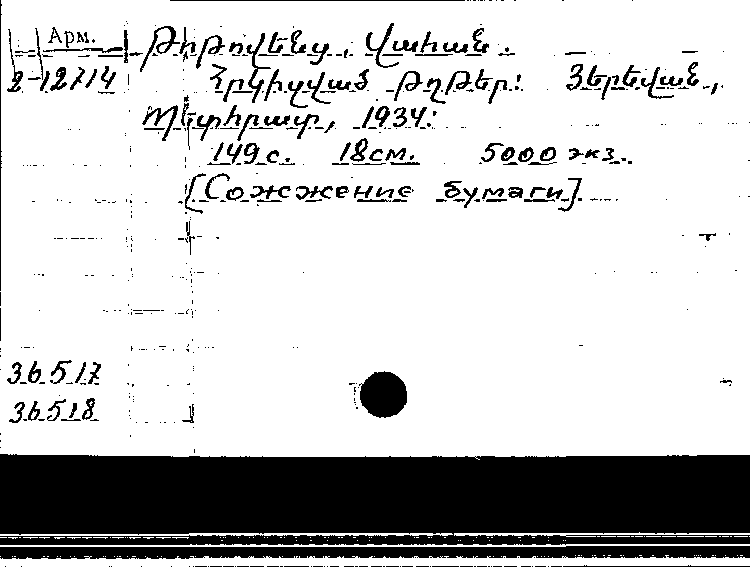 Арм. Թոթովենց, Վահան.
2-12714 Հրկիզված թղթեր: Յերեվան,
Պետհրատ, 1934:
149 с. 18см. 5000 экз.
[Сожжение бумаги]
36517
36518